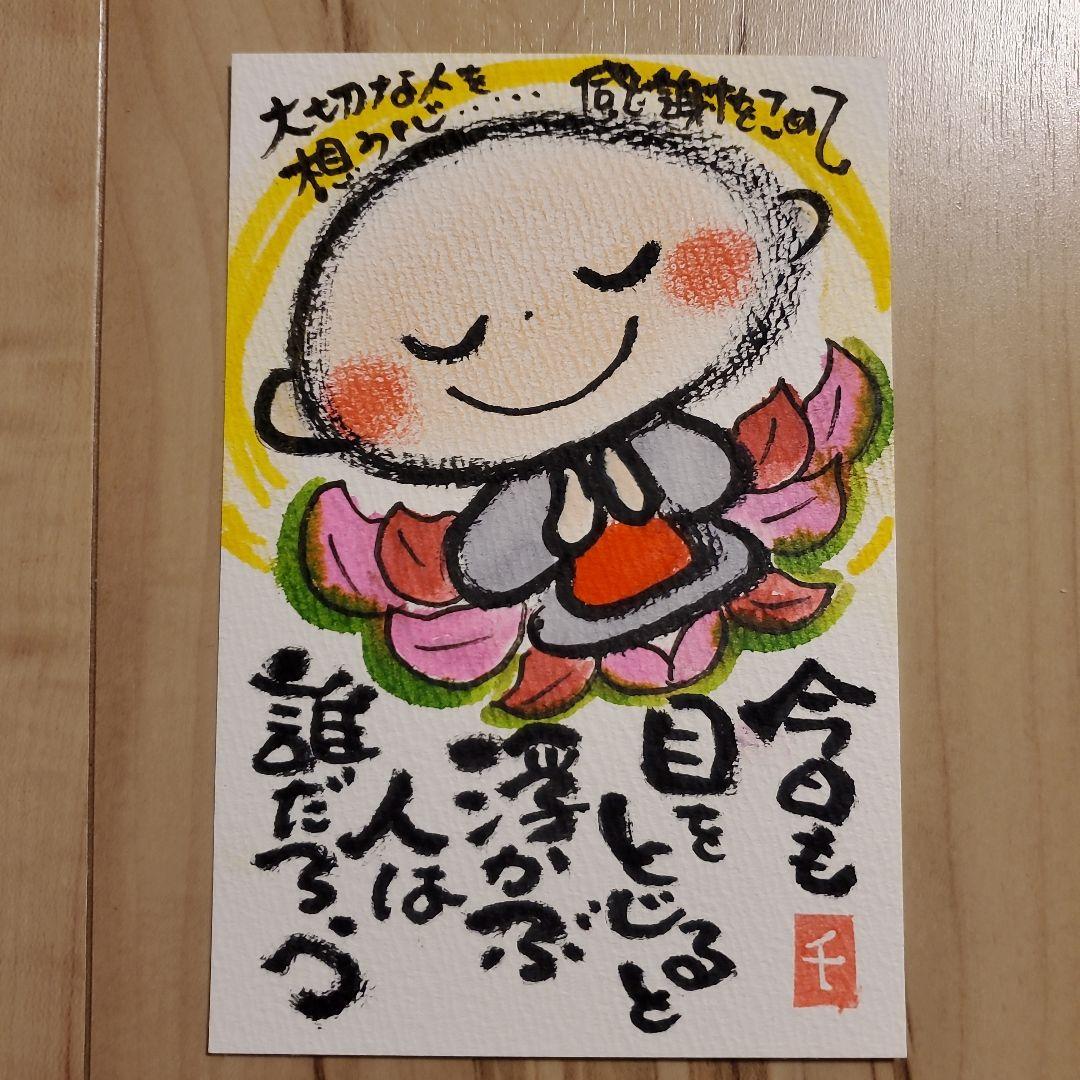 大切な人を
想う心・・・・・
感謝をこめて
今日も
目を
とじると
浮かぶ
人は
誰だろう
千